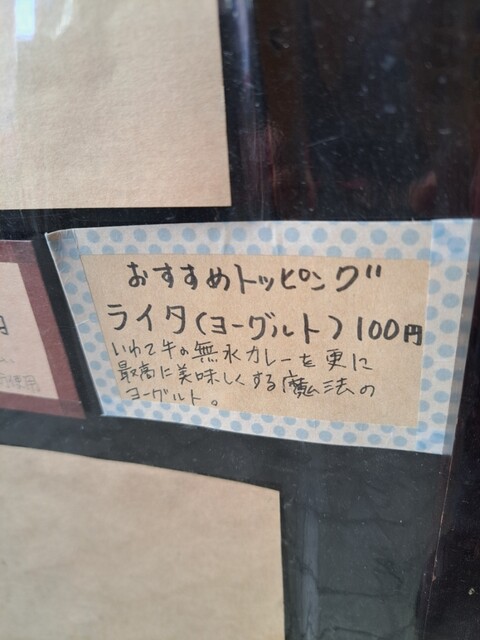 おすすめトッピング
ライタ(ヨーグルト)100円
いわて牛の無水カレーを更に
最高に美味しくする魔法の
ヨーグルト。
円
使用